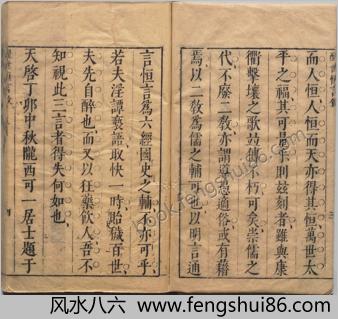 而人恒人恒而天亦得其恒萬世太
平之福其可量乎則兹刻者雖與康
衢擊壤之歌竝傳不朽可矣崇儒之
代不廢二教亦謂導愚適俗或有藉
焉以二教為儒之輔可也以明言通
言恒言為六經國史之輔不亦可乎
若夫淫譚褻語取快一時貽穢百世
夫先自醉也而又以狂藥飲人吾不
知視此三言者得失何如也
天啓丁卯中秋隴西可一居士題于
book.fengshui86.com
风水八六 ~ www.fengshui86.com